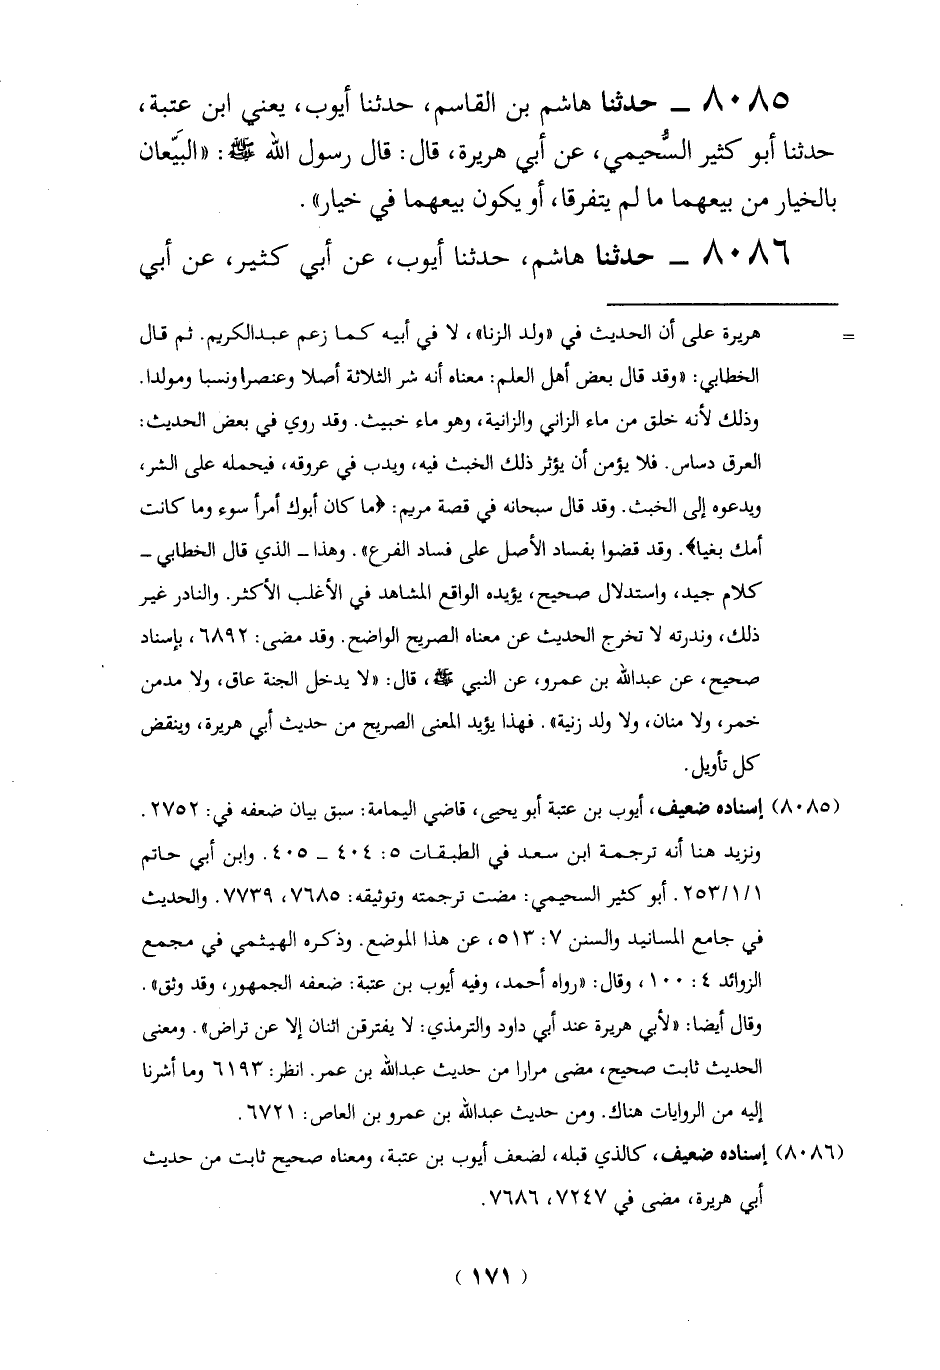 ٨٠٨٥ ــ حدثنا هاشم بن القاسم، حدثنا أيوب، يعني ابن عتبة،
حدثنا أبو كثير السُّحيمي، عن أبي هريرة، قال: قال رسول الله ﷺ: «البَيِّعان
بالخيار من بيعهما ما لم يتفرقا، أو يكون بيعهما في خيار» .
٨٠٨٦ ــ حدثنا هاشم، حدثنا أيوب، عن أبي كثير، عن أبي
= هريرة على أن الحديث في «ولد الزنا»، لا في أبيه كما زعم عبدالكريم. ثم قال
الخطابي: «وقد قال بعض أهل العلم: معناه أنه شر الثلاثة أصلا وعنصرا ونسبا ومولدا.
وذلك لأنه خلق من ماء الزاني والزانية، وهو ماء خبيث. وقد روي في بعض الحديث:
العرق دساس. فلا يؤمن أن يؤثر ذلك الخبث فيه، ويدب في عروقه، فيحمله على الشر،
ويدعوه إلى الخبث. وقد قال سبحانه في قصة مريم: ﴿ما كان أبوك أمرأ سوء وما كانت
أمك بغيا﴾. وقد قضوا بفساد الأصل على فساد الفرع». وهذا ــ الذي قال الخطابي ــ
كلام جيد، واستدلال صحيح، يؤيده الواقع المشاهد في الأغلب الأكثر. والنادر غير
ذلك، وندرته لا تخرج الحديث عن معناه الصريح الواضح. وقد مضى: ٦٨٩٢، بإسناد
صحيح، عن عبدالله بن عمرو، عن النبي ﷺ، قال: «لا يدخل الجنة عاق، ولا مدمن
خمر، ولا منان، ولا ولد زنية». فهذا يؤيد المعنى الصريح من حديث أبي هريرة، وينقض
كل تأويل.
(٨٠٨٥) إسناده ضعيف، أيوب بن عتبة أبو يحيى، قاضي اليمامة: سبق بيان ضعفه في: ٢٧٥٢.
ونزيد هنا أنه ترجمة ابن سعد في الطبقات ٥: ٤٠٤ ــ ٤٠٥. وابن أبي حاتم
١/١/٢٥٣. أبو كثير السحيمي: مضت ترجمته وتوثيقه: ٧٦٨٥، ٧٧٣٩. والحديث
في جامع المسانيد والسنن ٧: ٥١٣، عن هذا الموضع. وذكره الهيثمي في مجمع
الزوائد ٤: ١٠٠، وقال: «رواه أحمد، وفيه أيوب بن عتبة: ضعفه الجمهور، وقد وثق».
وقال أيضا: «لأبي هريرة عند أبي داود والترمذي: لا يفترقن اثنان إلا عن تراض». ومعنى
الحديث ثابت صحيح، مضى مرارا من حديث عبدالله بن عمر. انظر: ٦١٩٣ وما أشرنا
إليه من الروايات هناك. ومن حديث عبدالله بن عمرو بن العاص: ٦٧٢١.
(٨٠٨٦) إسناده ضعيف، كالذي قبله، لضعف أيوب بن عتبة، ومعناه صحيح ثابت من حديث
أبي هريرة، مضى في ٧٢٤٧، ٧٦٨٦.
( ١٧١ )